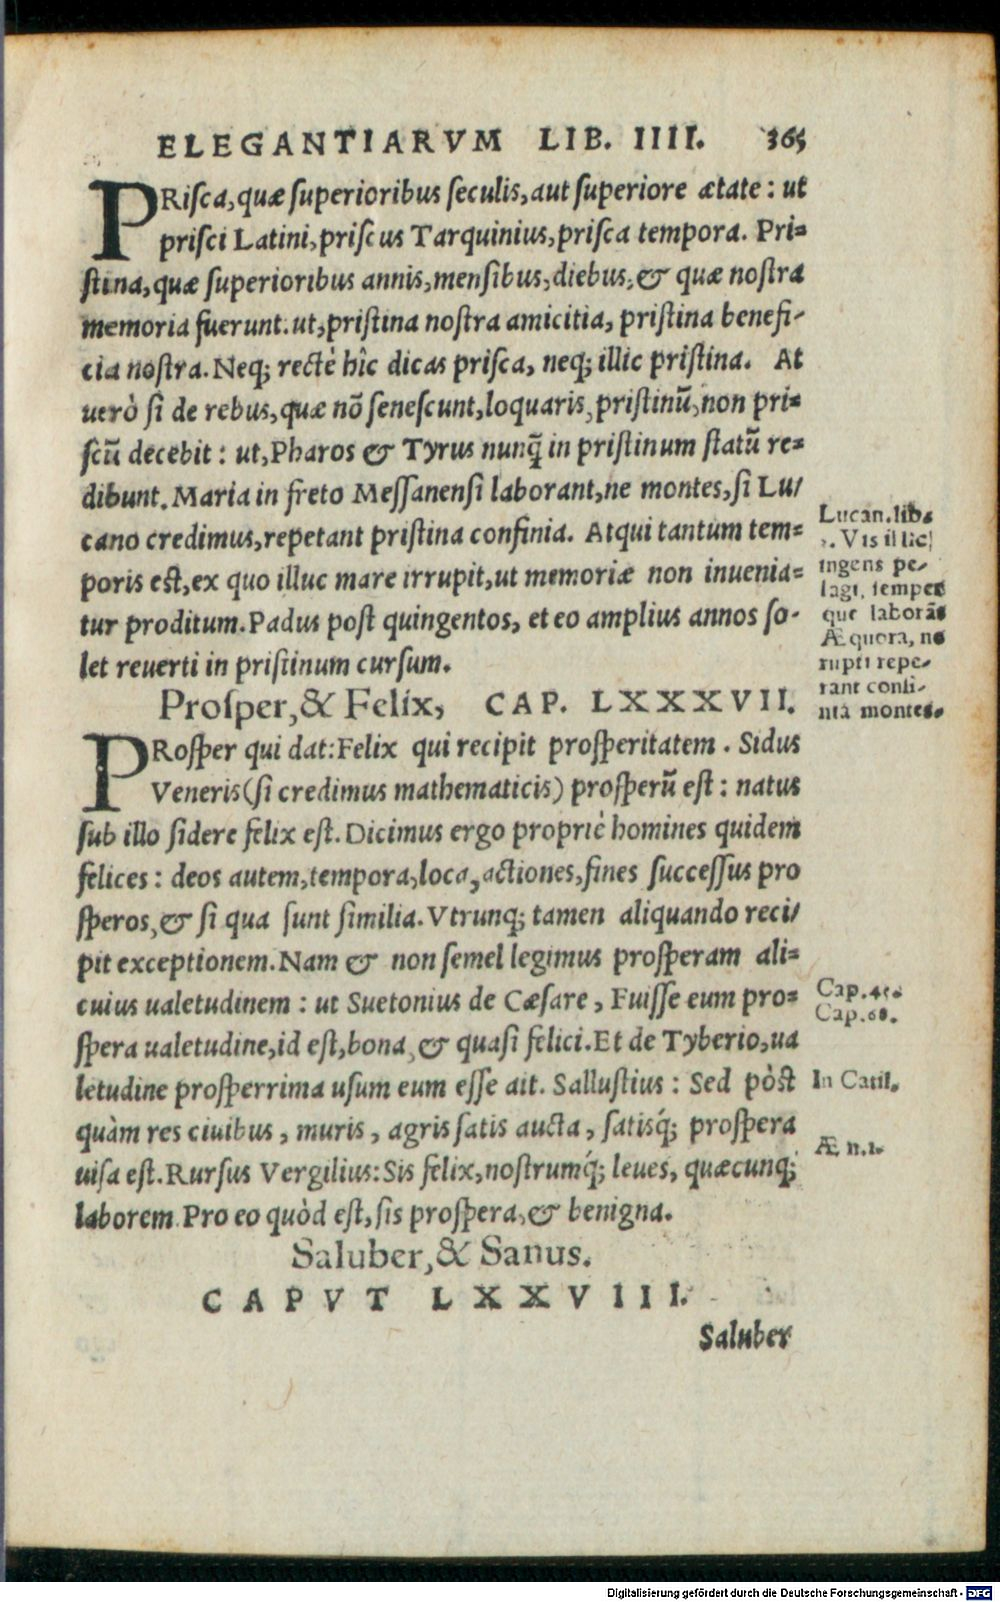 ELEGANTIARVM LIB. IIII. 365
PRisca, quæ superioribus seculis, aut superiore ætate : ut
prisci Latini, priscus Tarquinius, prisca tempora. Pri=
stina, quæ superioribus annis, mensibus, diebus, & quæ nostra
memoria fuerunt. ut, pristina nostra amicitia, pristina benefi-
cia nostra. Neq; rectè hîc dicas prisca, neq; illic pristina. At
uerò si de rebus, quæ nõ senescunt, loquaris, pristinũ, non pri=
scũ decebit : ut, Pharos & Tyrus nunq̃ in pristinum statũ re=
dibunt. Maria in freto Messanensi laborant, ne montes, si Lu/
cano credimus, repetant pristina confinia. Atqui tantum tem=
poris est, ex quo illuc mare irrupit, ut memoriæ non inuenia=
tur proditum. Padus post quingentos, et eo amplius annos so-
let reuerti in pristinum cursum.
Lucan. lib.
Vis illic
ingens pe-
lagi, semper
que laborãt
Æquora, ne
rupti repe-
tant confi-
nia montes.
Prosper, & Felix, CAP. LXXXVII.
PRosper qui dat: Felix qui recipit prosperitatem. Sidus
Veneris (si credimus mathematicis) prosperũ est : natus
sub illo sidere felix est. Dicimus ergo propriè homines quidem
felices : deos autem, tempora, loca, actiones, fines successus pro
speros, & si qua sunt similia. Vtrunq; tamen aliquando reci/
pit exceptionem. Nam & non semel legimus prosperam ali=
cuius ualetudinem : ut Suetonius de Cæsare, Fuisse eum pro=
spera ualetudine, id est, bona, & quasi felici. Et de Tyberio, ua
letudine prosperrima usum eum esse ait. Sallustius : Sed pòst
quàm res ciuibus, muris, agris satis aucta, satisq́; prospera
uisa est. Rursus Vergilius: Sis felix, nostrumq́; leues, quæcunq;
laborem. Pro eo quòd est, sis prospera, & benigna.
Cap. 45.
Cap. 68.
In Catil.
Æn. 1.
Saluber, & Sanus.
CAPVT LXXVIII.
Saluber
Digitalisierung gefördert durch die Deutsche Forschungsgemeinschaft - DFG